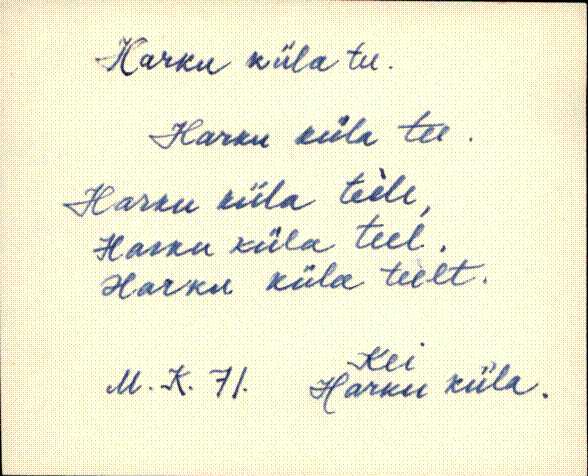 Harku küla tee.
Harku küla tee.
Harku küla teèle,
Harku küla teel.
Harku küla teèlt.
M. K. 71. Kei
Harku küla.